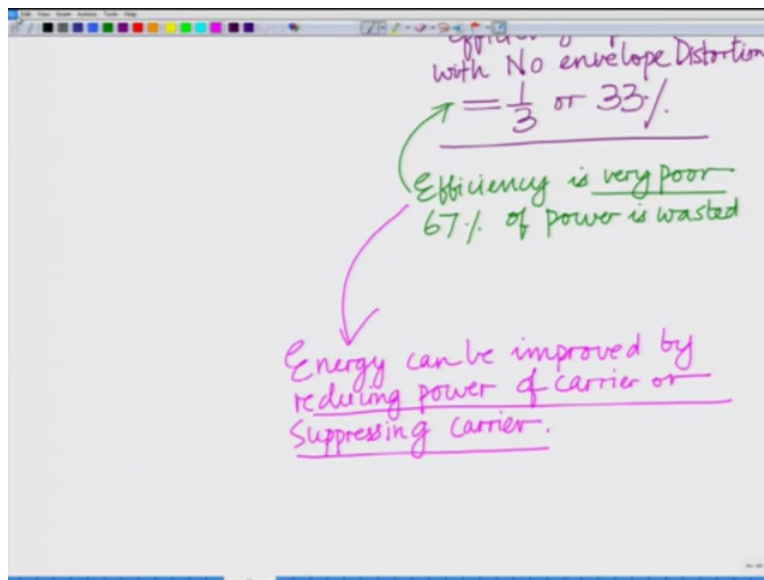 with No envelope Distortion
= 1/3 or 33%
Efficiency is very poor
67% of power is wasted
Energy can be improved by
reducing power of carrier or
Suppressing carrier.